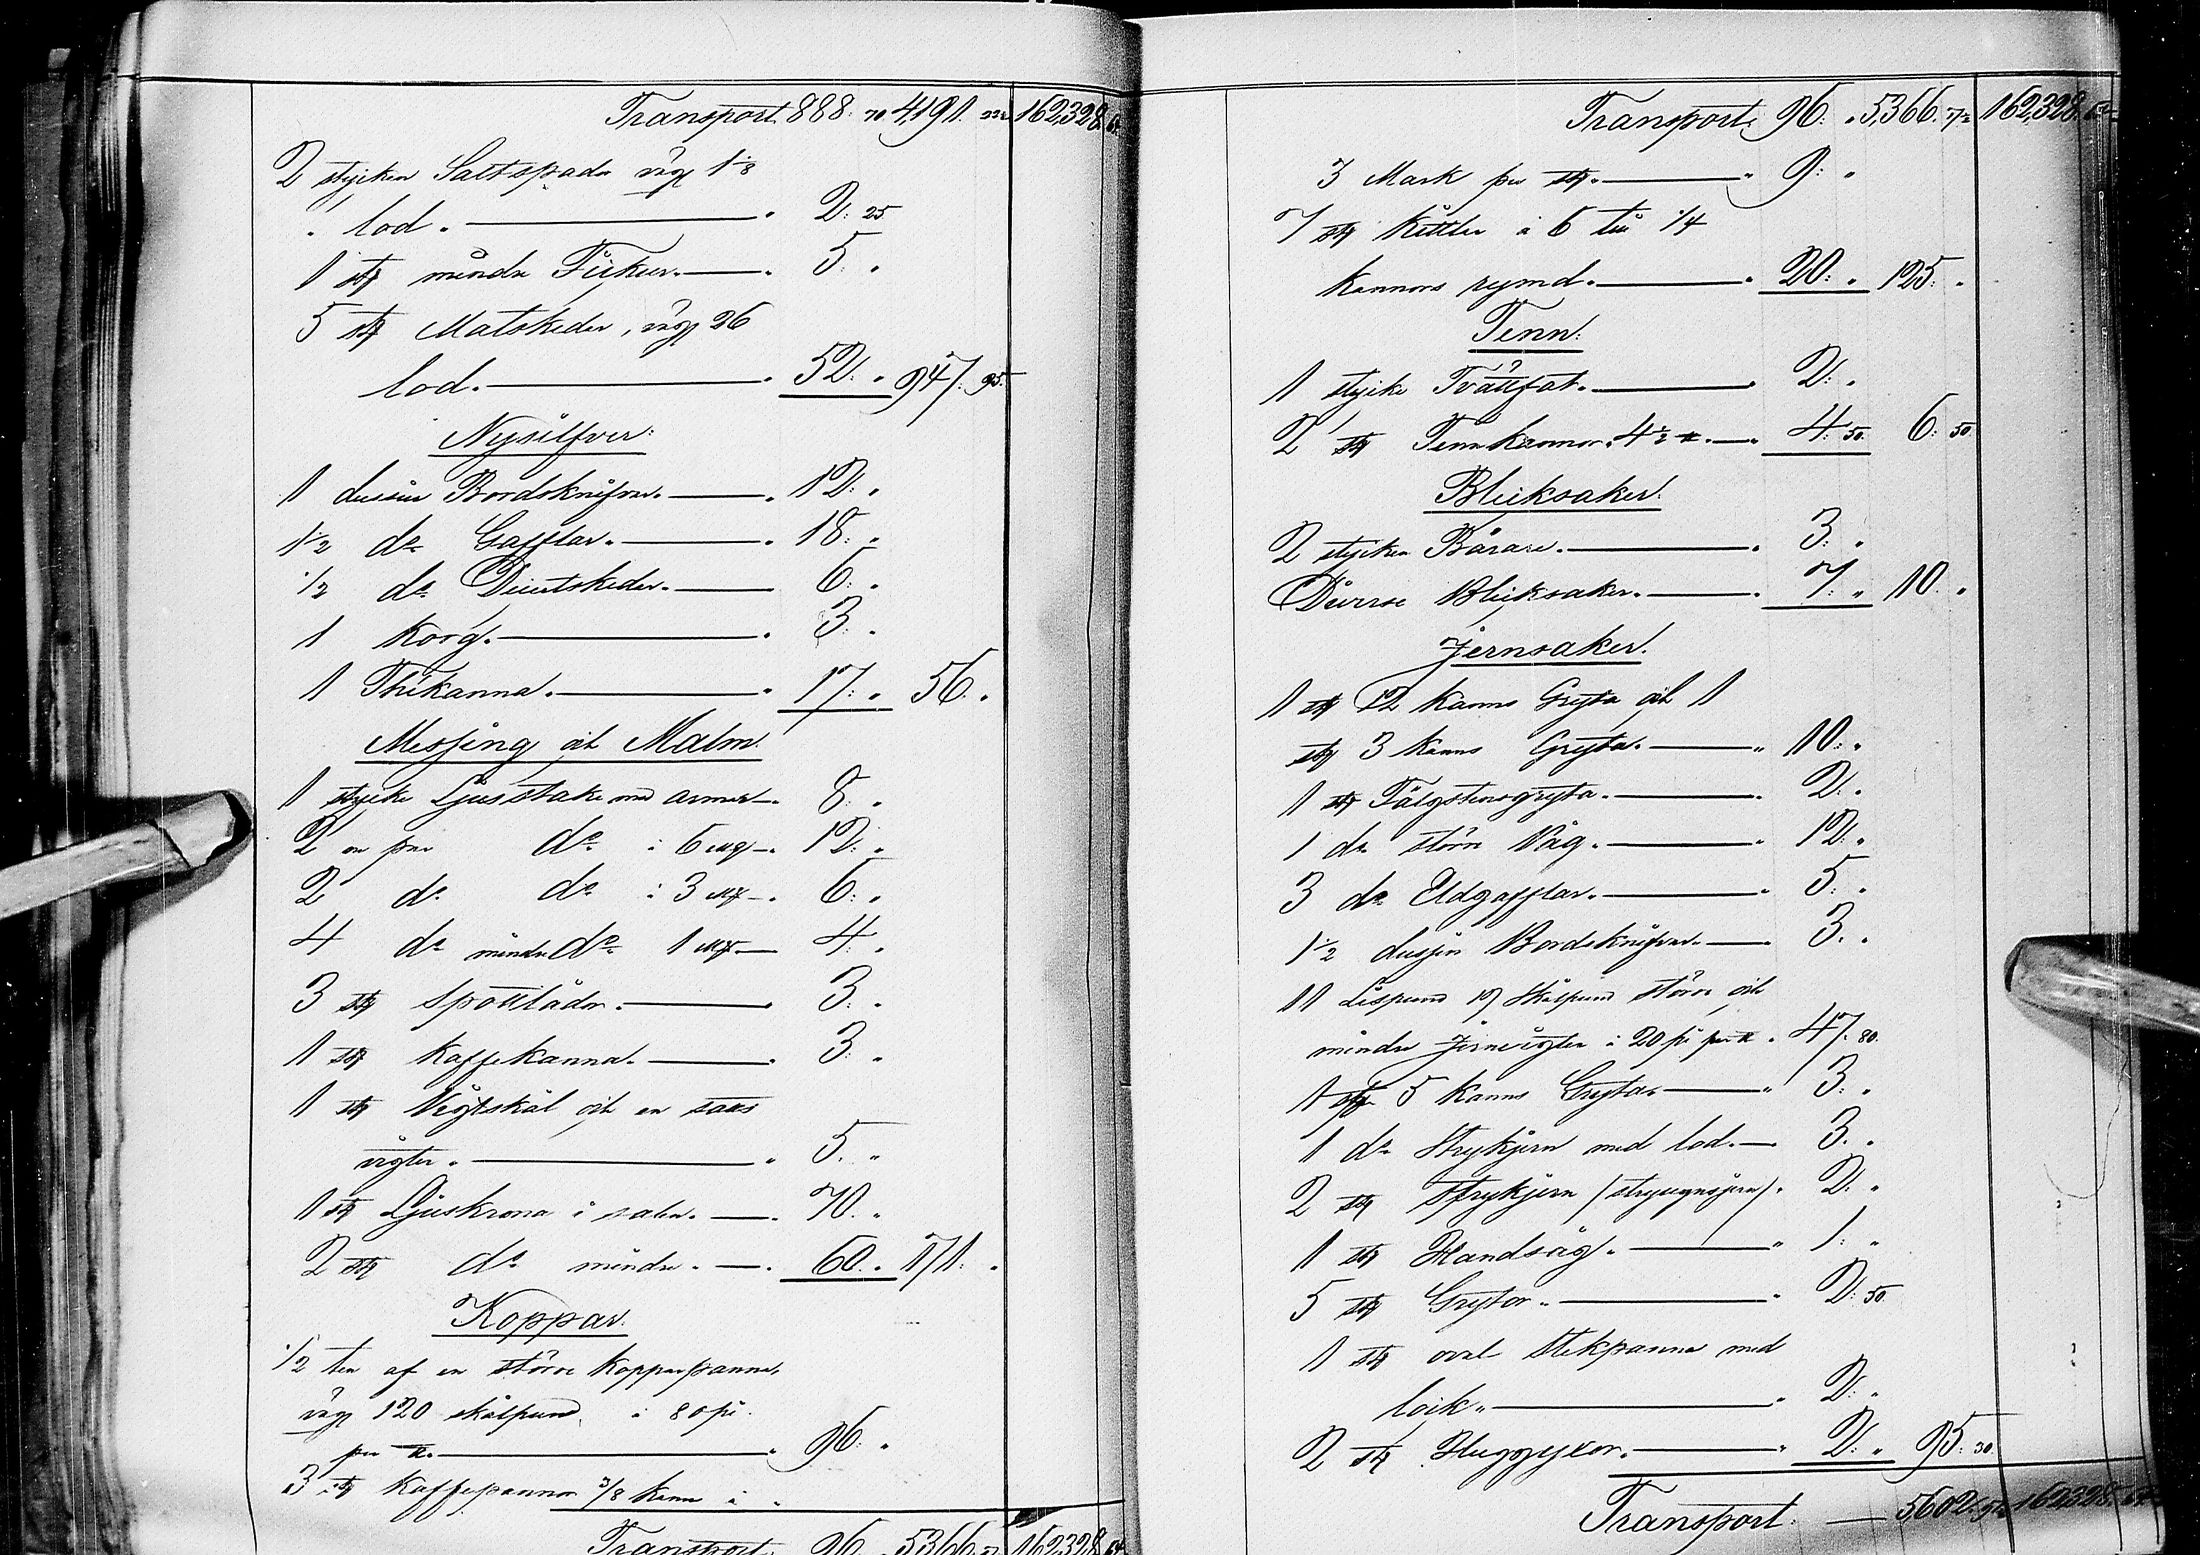 Transport 888. 70 4,191. 22 162,328. 64
2 stycken Saltspadar väg 1 1/8
" lod. — " 2: 25
1 stk mindre Fickur. — " 5: "
5 stk Matskedar, väg 26
lod. — " 52: " 947: 95.
Nysilfver:
1 dussin Bordsknifvar. — " 12: "
1 1/2 do Gafflar. — " 18: "
1/2 do Desertskedar. — " 6: "
1 Korg. — " 3: "
1 Thékanna. — " 17: " 56. "
Messing och Malm.
1 stycke Ljusstake med armar — " 8: "
2 en par do à 6 mk — " 12: "
2 do do à 3 mk — " 6: "
4 do mindre do 1 mk — 4: "
3 stk Spottlådor. — " 3: "
1 stk Kaffekanna. — " 3: "
1 stk Vigtskål och en sats
vigter. — " 5. "
1 stk Ljuskrona i salen. — " 70. "
2 stk do mindre. — " 60. " 171: "
Koppar.
1/2 ten af en större Kopparpanna,
väg 120 skålpund, à 80 pi.
per ℔. — " 96: "
3 stk Kaffepannor 3/8 kann à "
Transport. 96. 5366. 72 162328. 64
Transport. 96: " 5,366. 72 162,328. 64
3 Mark per stk. — " 9: "
7 stk Kittlar à 6 till 1/4
Kannors rymd. — " 20: " 125: "
Tenn:
1 stycke Tvättfat. — " 2: "
2 stk Tennkannor. 4 1/2 ℔. — " 4: 50. 6: 50
Blecksaker.
2 stycken Bårare. — " 3: "
Diverse Blecksaker. — " 7: " 10. "
Jernsaker.
1 stk 12 kanns Gryta och 1
stk 3 kanns Gryta. — " 10: "
1 stk Tälgstensgryta. — " 2: "
1 do större Våg. — " 12: "
3 do Eldgafflar. — " 5: "
1 1/2 dussin Bordsknifvar. — " 3. "
11 Lispund 19 Skålpund större och
mindre Jernvigter à 20 pi per ℔. " 47. 80.
1 stk 5 kanns Gryta. — " 3: "
1 do Strykjern med lod. — " 3. "
2 stk Strykjern (strygugnsjern). " 2: "
1 stk Handsåg. — " 1: "
5 stk Grytor. — " 2: 50.
1 stk oval Stekpanna med
lock. — " 2: "
2 stk Huggyxor. — " 2: " 95: 30.
Transport. — 5,602. 52 162328. 64